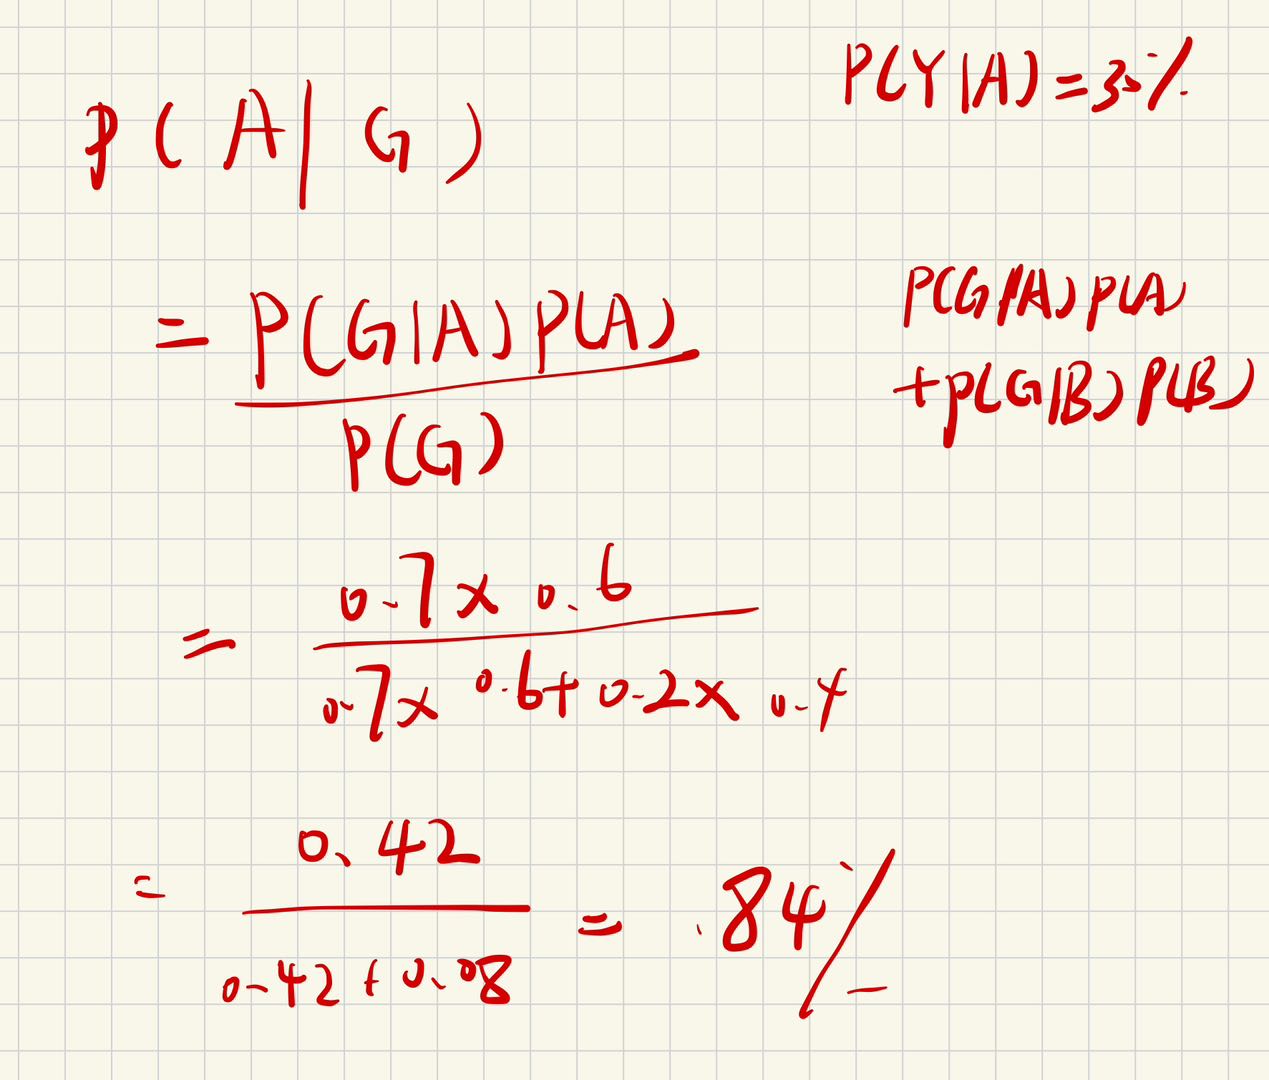 P(Y|A)=30%
P(A|G)
= P(G|A)P(A)
P(G)
P(G|A)P(A)
+P(G|B)P(B)
= 0.7x0.6
0.7x0.6+0.2x0.4
= 0.42
0.42+0.08
= .84%